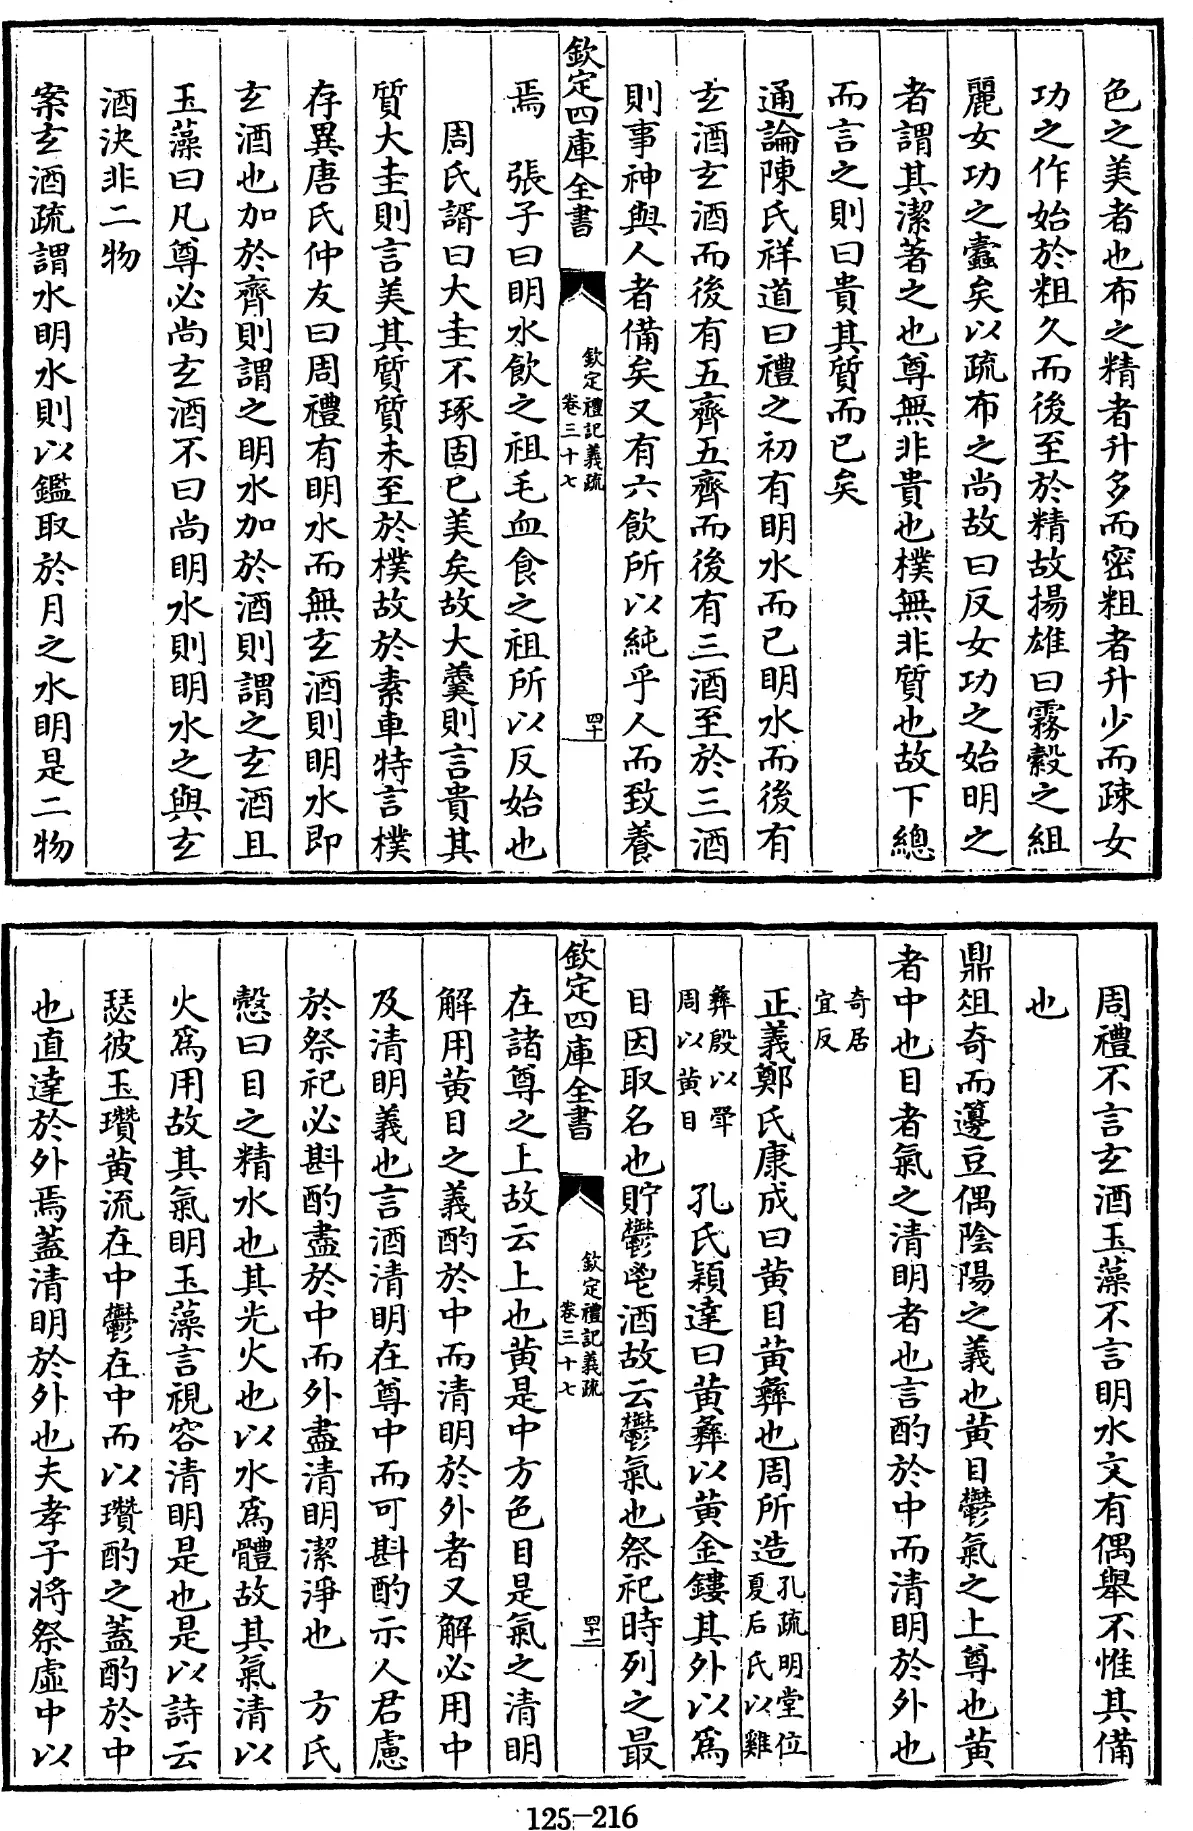 色之美者也布之精者升多而密粗者升少而疎女
功之作始於粗久而後至於精故揚雄曰霧縠之組
麗女功之蠧矣以疏布之尚故曰反女功之始明之
者謂其潔著之也尊無非貴也樸無非質也故下總
而言之則曰貴其質而已矣
通論陳氏祥道曰禮之初有明水而已明水而後有
玄酒玄酒而後有五齊五齊而後有三酒至於三酒
則事神與人者備矣又有六飲所以純乎人而致養
欽定四庫全書
欽定禮記義疏
卷三十七
四十
焉　張子曰明水飲之祖毛血食之祖所以反始也
周氏諝曰大圭不琢固已美矣故大羹則言貴其
質大圭則言美其質質未至於樸故於素車特言樸
存異唐氏仲友曰周禮有明水而無玄酒則明水即
玄酒也加於齊則謂之明水加於酒則謂之玄酒且
玉藻曰凡尊必尚玄酒不曰尚明水則明水之與玄
酒決非二物
案玄酒疏謂水明水則以鑑取於月之水明是二物
周禮不言玄酒玉藻不言明水文有偶舉不惟其備
也
鼎俎奇而籩豆偶陰陽之義也黃目鬱氣之上尊也黃
者中也目者氣之清明者也言酌於中而清明於外也
奇居
宜反
正義鄭氏康成曰黃目黃彝也周所造孔疏明堂位
夏后氏以雞
彝殷以斝
周以黃目　孔氏穎達曰黃彝以黃金鏤其外以爲
目因取名也貯鬱鬯酒故云鬱氣也祭祀時列之最
欽定四庫全書
欽定禮記義疏
卷三十七
四十一
在諸尊之上故云上也黃是中方色目是氣之清明
解用黃目之義酌於中而清明於外者又解必用中
及清明義也言酒清明在尊中而可斟酌示人君慮
於祭祀必斟酌盡於中而外盡清明潔淨也　方氏
慤曰目之精水也其光火也以水爲體故其氣清以
火爲用故其氣明玉藻言視容清明是也是以詩云
瑟彼玉瓚黃流在中鬱在中而以瓚酌之蓋酌於中
也直達於外焉蓋清明於外也夫孝子將祭虛中以
125-216